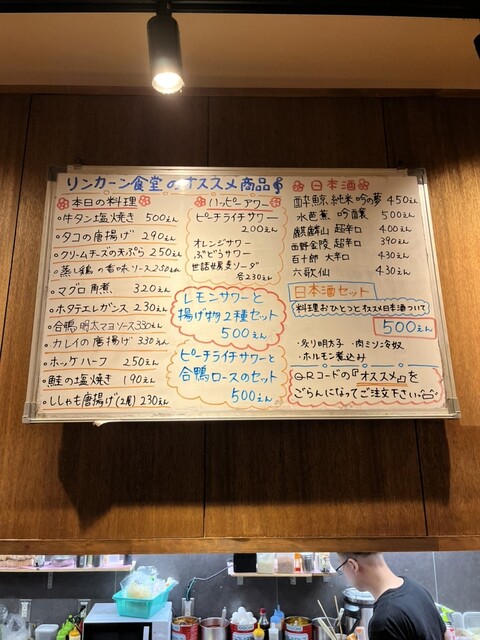 リンカーン食堂のオススメ商品
本日の料理
・牛タン塩焼き 500えん
・タコの唐揚げ 290えん
・クリームチーズの天ぷら 250えん
・蒸し鶏の香味ソース 250えん
・マグロ角煮 320えん
・ホタテエレガンス 230えん
・合鴨明太マヨソース 330えん
・カレイの唐揚げ 330えん
・ホッケハーフ 250えん
・鮭の塩焼き 190えん
・ししゃも唐揚げ(2尾) 230えん
ハッピーアワー
ピーチライチサワー
200えん
オレンジサワー
ぶどうサワー
世話女房麦ソーダ
各230えん
レモンサワーと
揚げ物2種セット
500えん
ピーチライチサワーと
合鴨ロースのセット
500えん
日本酒
酔鯨 純米 吟の夢 450えん
水芭蕉 吟醸 500えん
麒麟山 超辛口 400えん
西野金陵 超辛口 390えん
百十郎 大辛口 430えん
六歌仙 430えん
日本酒セット
料理おひとつとオススメ日本酒ついて
500えん
・炙り明太子 ・肉ミソ冷奴
・ホルモン煮込み
QRコードの『オススメ』を
ごらんになってご注文下さい